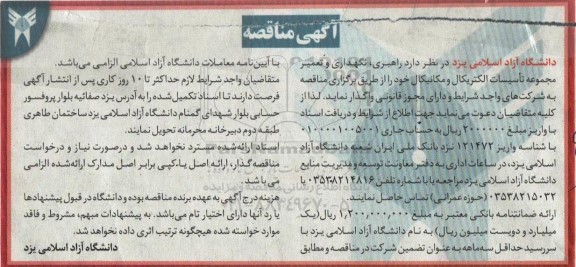 آگهی مناقصه
دانشگاه آزاد اسلامی یزد در نظر دارد راهبری، نگهداری و تعمیر
مجموعه تأسیسات الکتریکال و مکانیکال خود را از طریق برگزاری مناقصه
به شرکت های واجد شرایط و دارای مجوز قانونی واگذار نماید. لذا از
کلیه متقاضیان دعوت می نماید جهت اطلاع از شرایط و دریافت اسناد
با واریز مبلغ ۲۰۰۰۰۰۰ ریال به حساب جاری
با شناسه واریز ۱۲۱۴۷۲ نزد بانک ملی ایران شعبه دانشگاه آزاد
اسلامی یزد، در ساعات اداری به دفتر معاونت توسعه و مدیریت منابع
دانشگاه آزاد اسلامی یزد مراجعه یا با شماره تلفن ۰۳۵۳۸۲۱۴۸۱۶
۰۳۵۳۸۲۱۵۰۳۲ (حوزه عمرانی) تماس حاصل نمایند.
ارائه ضمانتنامه بانکی معتبر به مبلغ ۱,۲۰۰,۰۰۰,۰۰۰ ریال (یک
میلیارد و دویست میلیون ریال) به نام دانشگاه آزاد اسلامی یزد با
سررسید حداقل سه ماهه به عنوان تضمین شرکت در مناقصه و مطابق
با آیین نامه معاملات دانشگاه آزاد اسلامی الزامی می باشد.
متقاضیان واجد شرایط لازم حداکثر تا ۱۰ روز کاری پس از انتشار آگهی
فرصت دارند تا اسناد تکمیل شده را به آدرس یزد صفائیه بلوار پروفسور
حسابی بلوار شهدای گمنام دانشگاه آزاد اسلامی یزد ساختمان طاهری
طبقه دوم دبیرخانه محرمانه تحویل نمایند.
اسناد ارائه شده مسترد نخواهد شد و در صورت نیاز و درخواست
مناقصه گذار، ارائه اصل یا کپی برابر اصل مدارک ارائه شده الزامی
می باشد.
هزینه درج آگهی به عهده برنده مناقصه بوده و دانشگاه در قبول پیشنهادها
یا رد آنها دارای اختیار تام می باشد. به پیشنهادات مبهم، مشروط و فاقد
موارد خواسته شده هیچگونه ترتیب اثری داده نخواهد شد.
دانشگاه آزاد اسلامی یزد